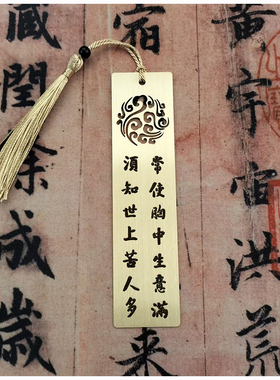 黃宇宙洪荒
常使胸中生意滿
須知世上苦人多
宿
來
藏閏餘成歲